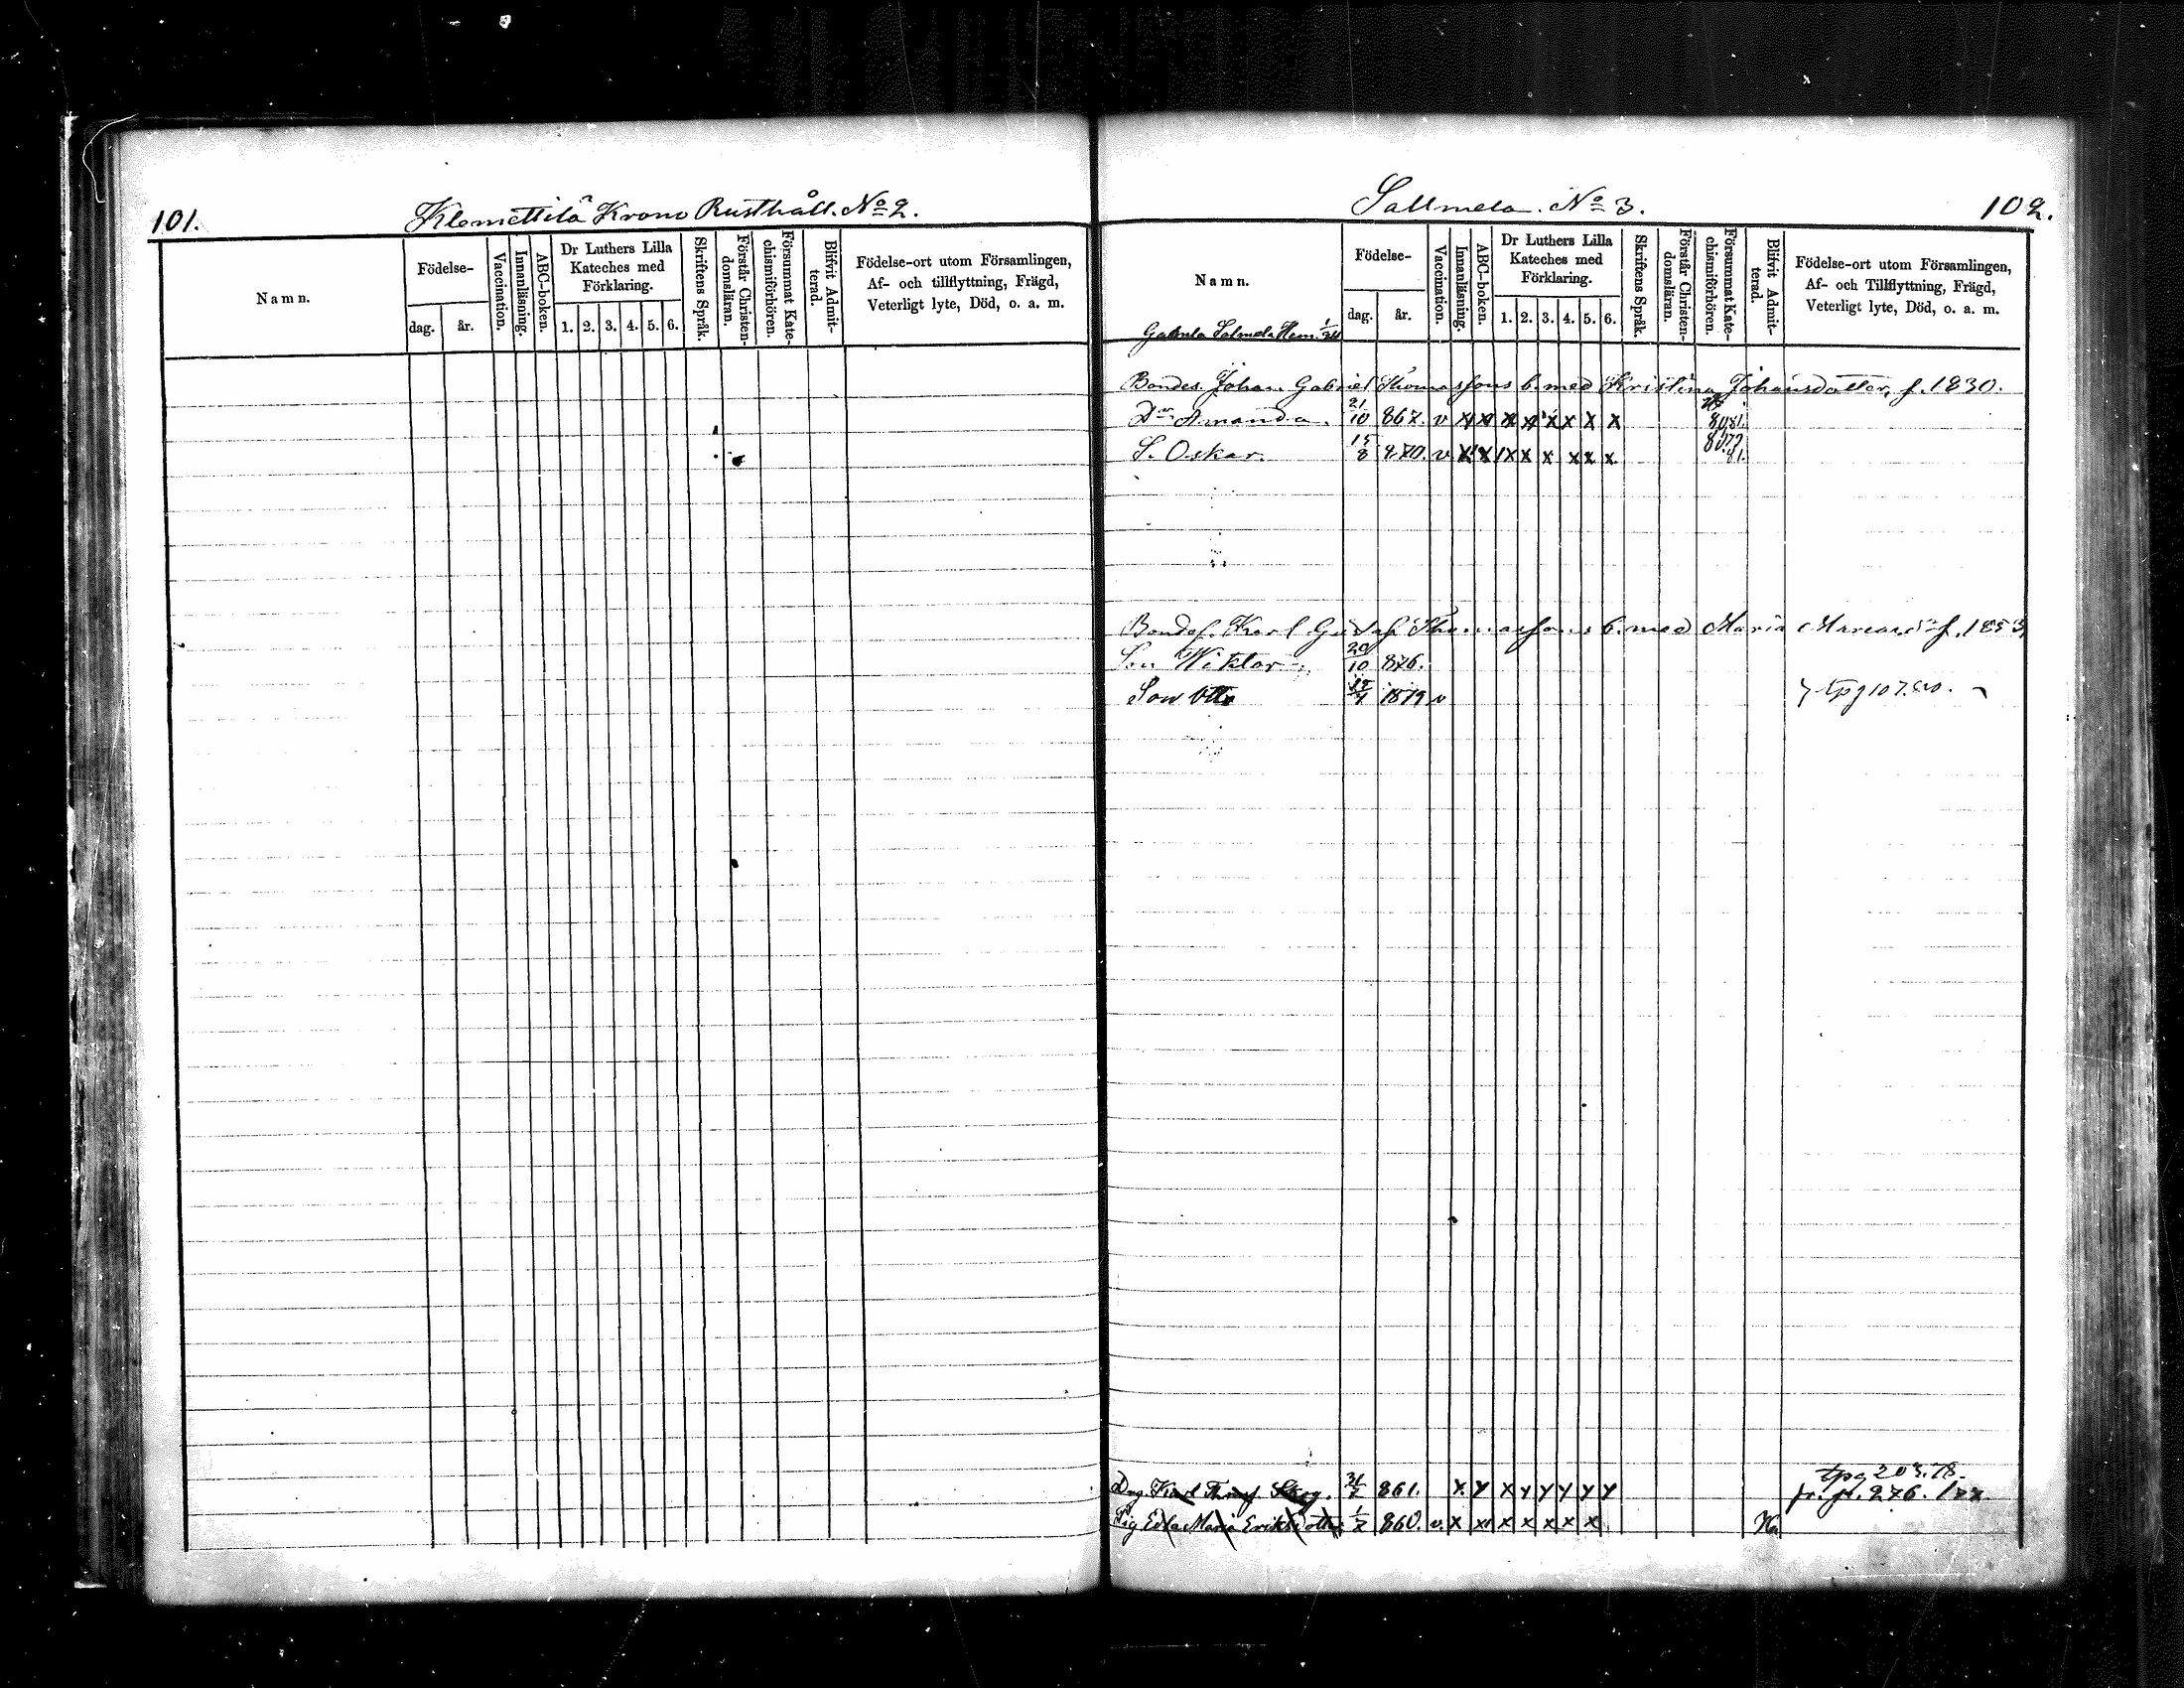 101.
Klemettilä Krono Rusthåll. No 2.
Namn.
Födelse-
dag.
år.
Vaccination.
Innanläsning.
ABC-boken.
Dr Luthers Lilla
Kateches med
Förklaring.
1. 2. 3. 4. 5. 6.
Skriftens Språk.
Förstår Christen-
domsläran.
Försummat Kate-
chismiförhören.
Blifvit Admit-
terad.
Födelse-ort utom Församlingen,
Af- och tillflyttning, Frägd,
Veterligt lyte, Död, o. a. m.
Sallmela. No 3.
102.
Namn.
Födelse-
dag.
år.
Vaccination.
Innanläsning.
ABC-boken.
Dr Luthers Lilla
Kateches med
Förklaring.
1. 2. 3. 4. 5. 6.
Skriftens Språk.
Förstår Christen-
domsläran.
Försummat Kate-
chismiförhören.
Blifvit Admit-
terad.
Födelse-ort utom Församlingen,
Af- och Tillflyttning, Frägd,
Veterligt lyte, Död, o. a. m.
Salmela Hem.
Bondes. Johan Gabriel Thomassons b. med Kristina Johansdotter, f. 1830.
Dr Amanda. 21/10 867. v x x x x x x x x 80 81.
S. Oskar. 15/8 870. v x x x x x x x x 80 79 81.
Bondes. Karl Gustaf Thomassons b. med Maria f. 1853
Son Wiktor 20/10 876.
Son Otto 1879 v tpg 107.
Dng. Karl 861. x x x x x x x x tpg 203. 78.
Pig Edla Maria Eriksdotter 860. v. x x x x x x x 276.